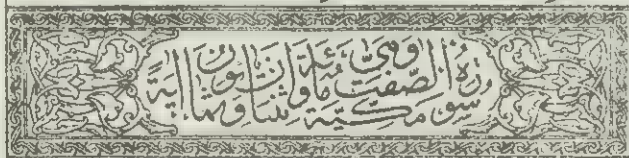 سورة الصفت مكية وهى مائة واثنتان وثمانون اية